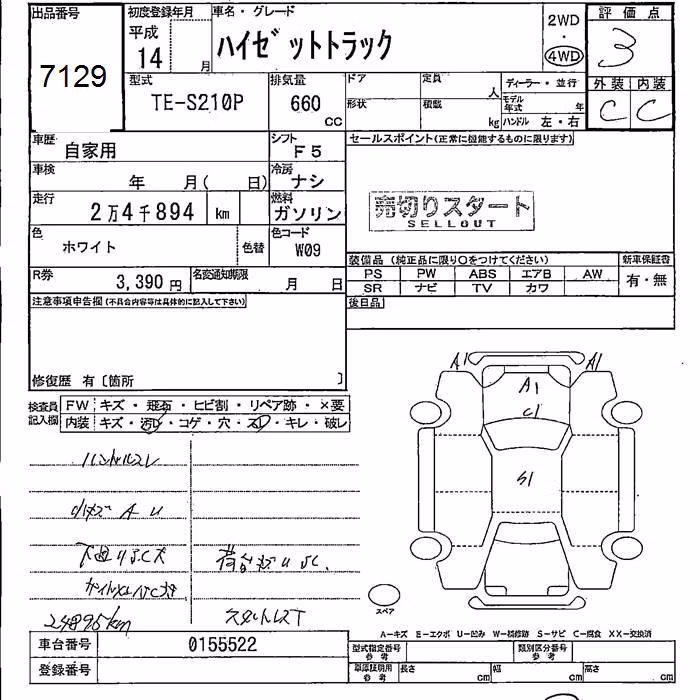 出品番号
7129
初度登録年月
平成
14 月
車名・グレード
ハイゼットトラック
2WD
・
4WD
評価点
3
型式
TE-S210P
排気量
660
CC
ドア
定員
人
ディーラー・並行
形状
積載
kg
モデル年式 年
ハンドル 左・右
外装 内装
C C
車歴
自家用
シフト
F5
セールスポイント(正常に機能するものに限ります)
車検
年 月( 日)
冷房
ナシ
走行
2万4千894 km
燃料
ガソリン
売切りスタート
SELLOUT
色
ホワイト
色替
色コード
W09
装備品 (純正品に限り○をつけてください)
新車保証書
PS PW ABS エアB AW
SR ナビ TV カワ
有・無
R券
3,390 円
名変通知期限
月 日
後日品
注意事項申告欄(不具合内容等は具体的に記入して下さい)
修復歴 有〔箇所 〕
検査員記入欄
FW キズ・飛石・ヒビ割・リペア跡・×要
内装 キズ・汚レ・コゲ・穴・スレ・キレ・破レ
A1 A1
A1
C1
S1
ハンドルスレ
小キズ A U
24895km
スペア
A−キズ E−エクボ U−凹み W−補修跡 S−サビ C−腐食 XX−交換済
車台番号
0155522
登録番号
型式指定番号
参考
類別区分番号
参考
車庫証明用
参考
長さ cm
幅 cm
高さ cm